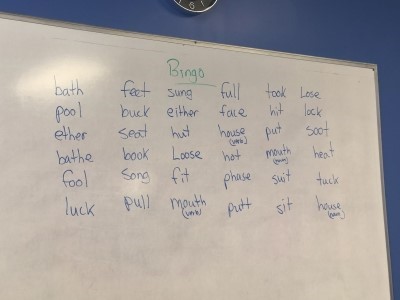 Bingo
bath feet sung full took Lose
pool buck either face hit lock
ether seat hut house (verb) put soot
bathe book Loose hot mouth (noun) heat
fool song fit phase suit tuck
luck pull mouth (verb) putt sit house (noun)